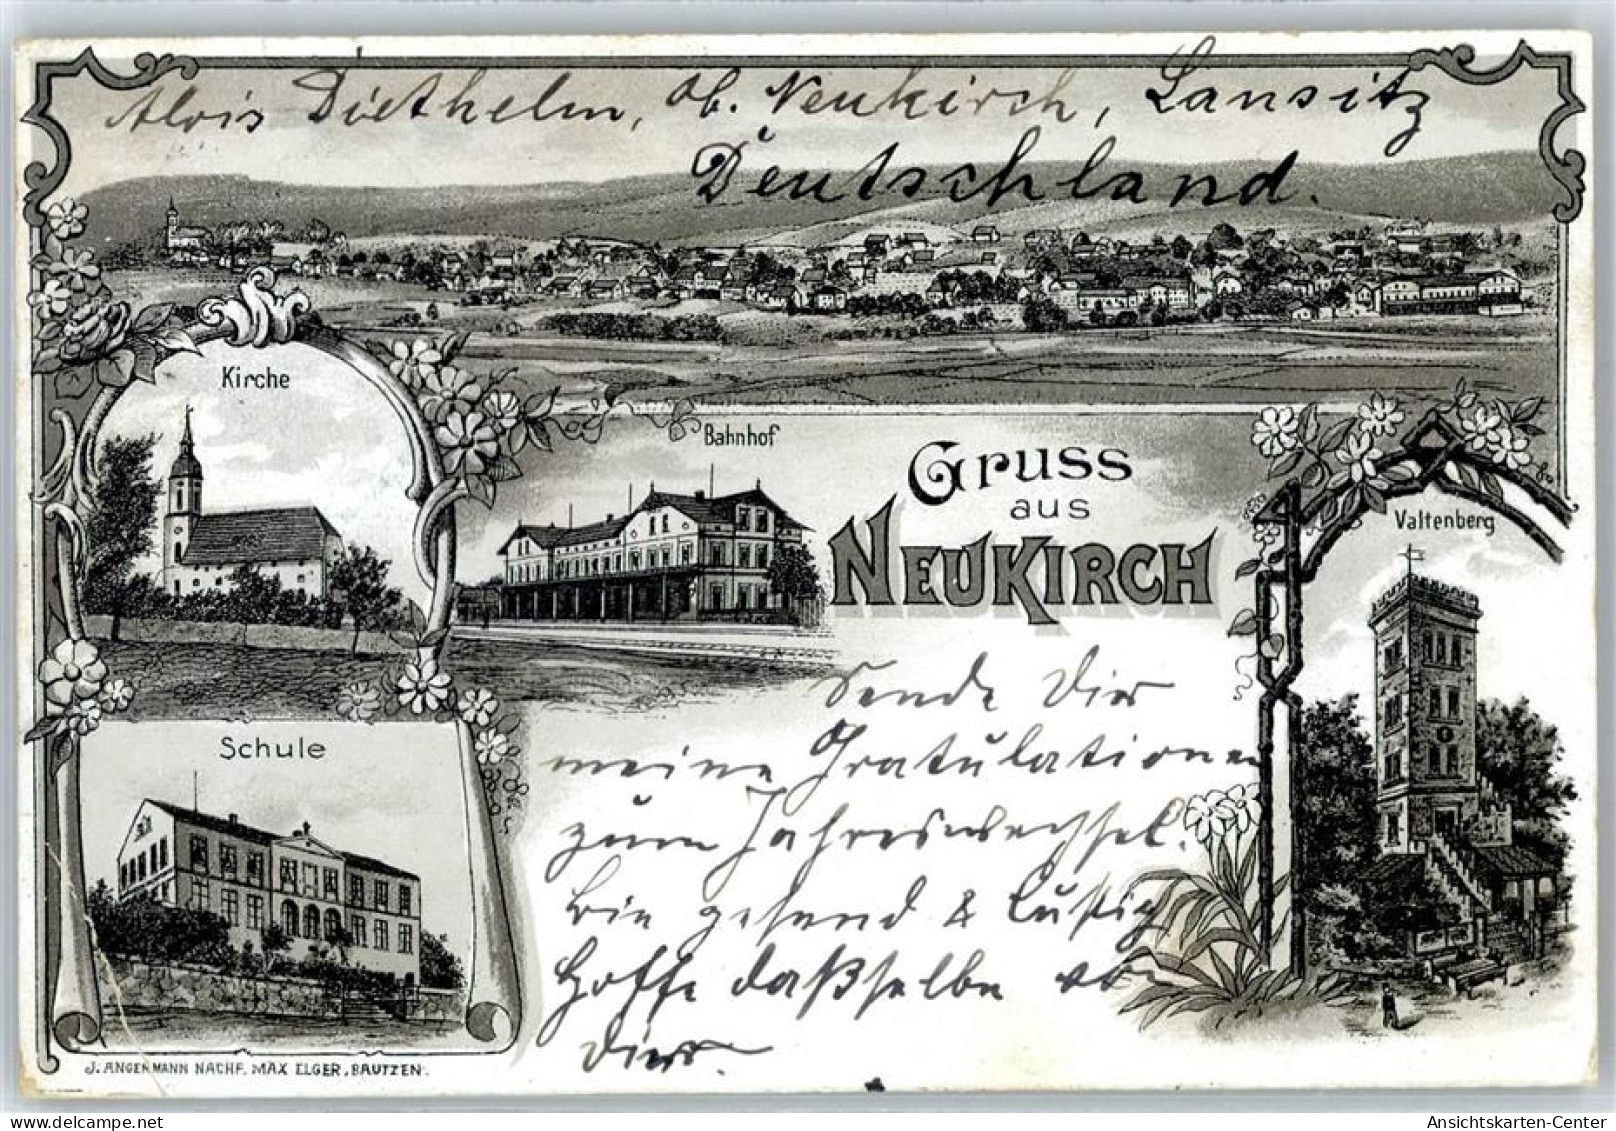 Alois Diethelm, Ob. Neukirch, Lausitz
Deutschland.
Kirche
Bahnhof
Gruss
aus
NEUKIRCH
Valtenberg
Schule
Sende Dir
meine Gratulationen
zum Jahreswechsel.
Bin gesund & lustig
Hoffe daßselbe von
Dir.
J. ANGERMANN NACHF. MAX ELGER, BAUTZEN.
Ansichtskarten-Center